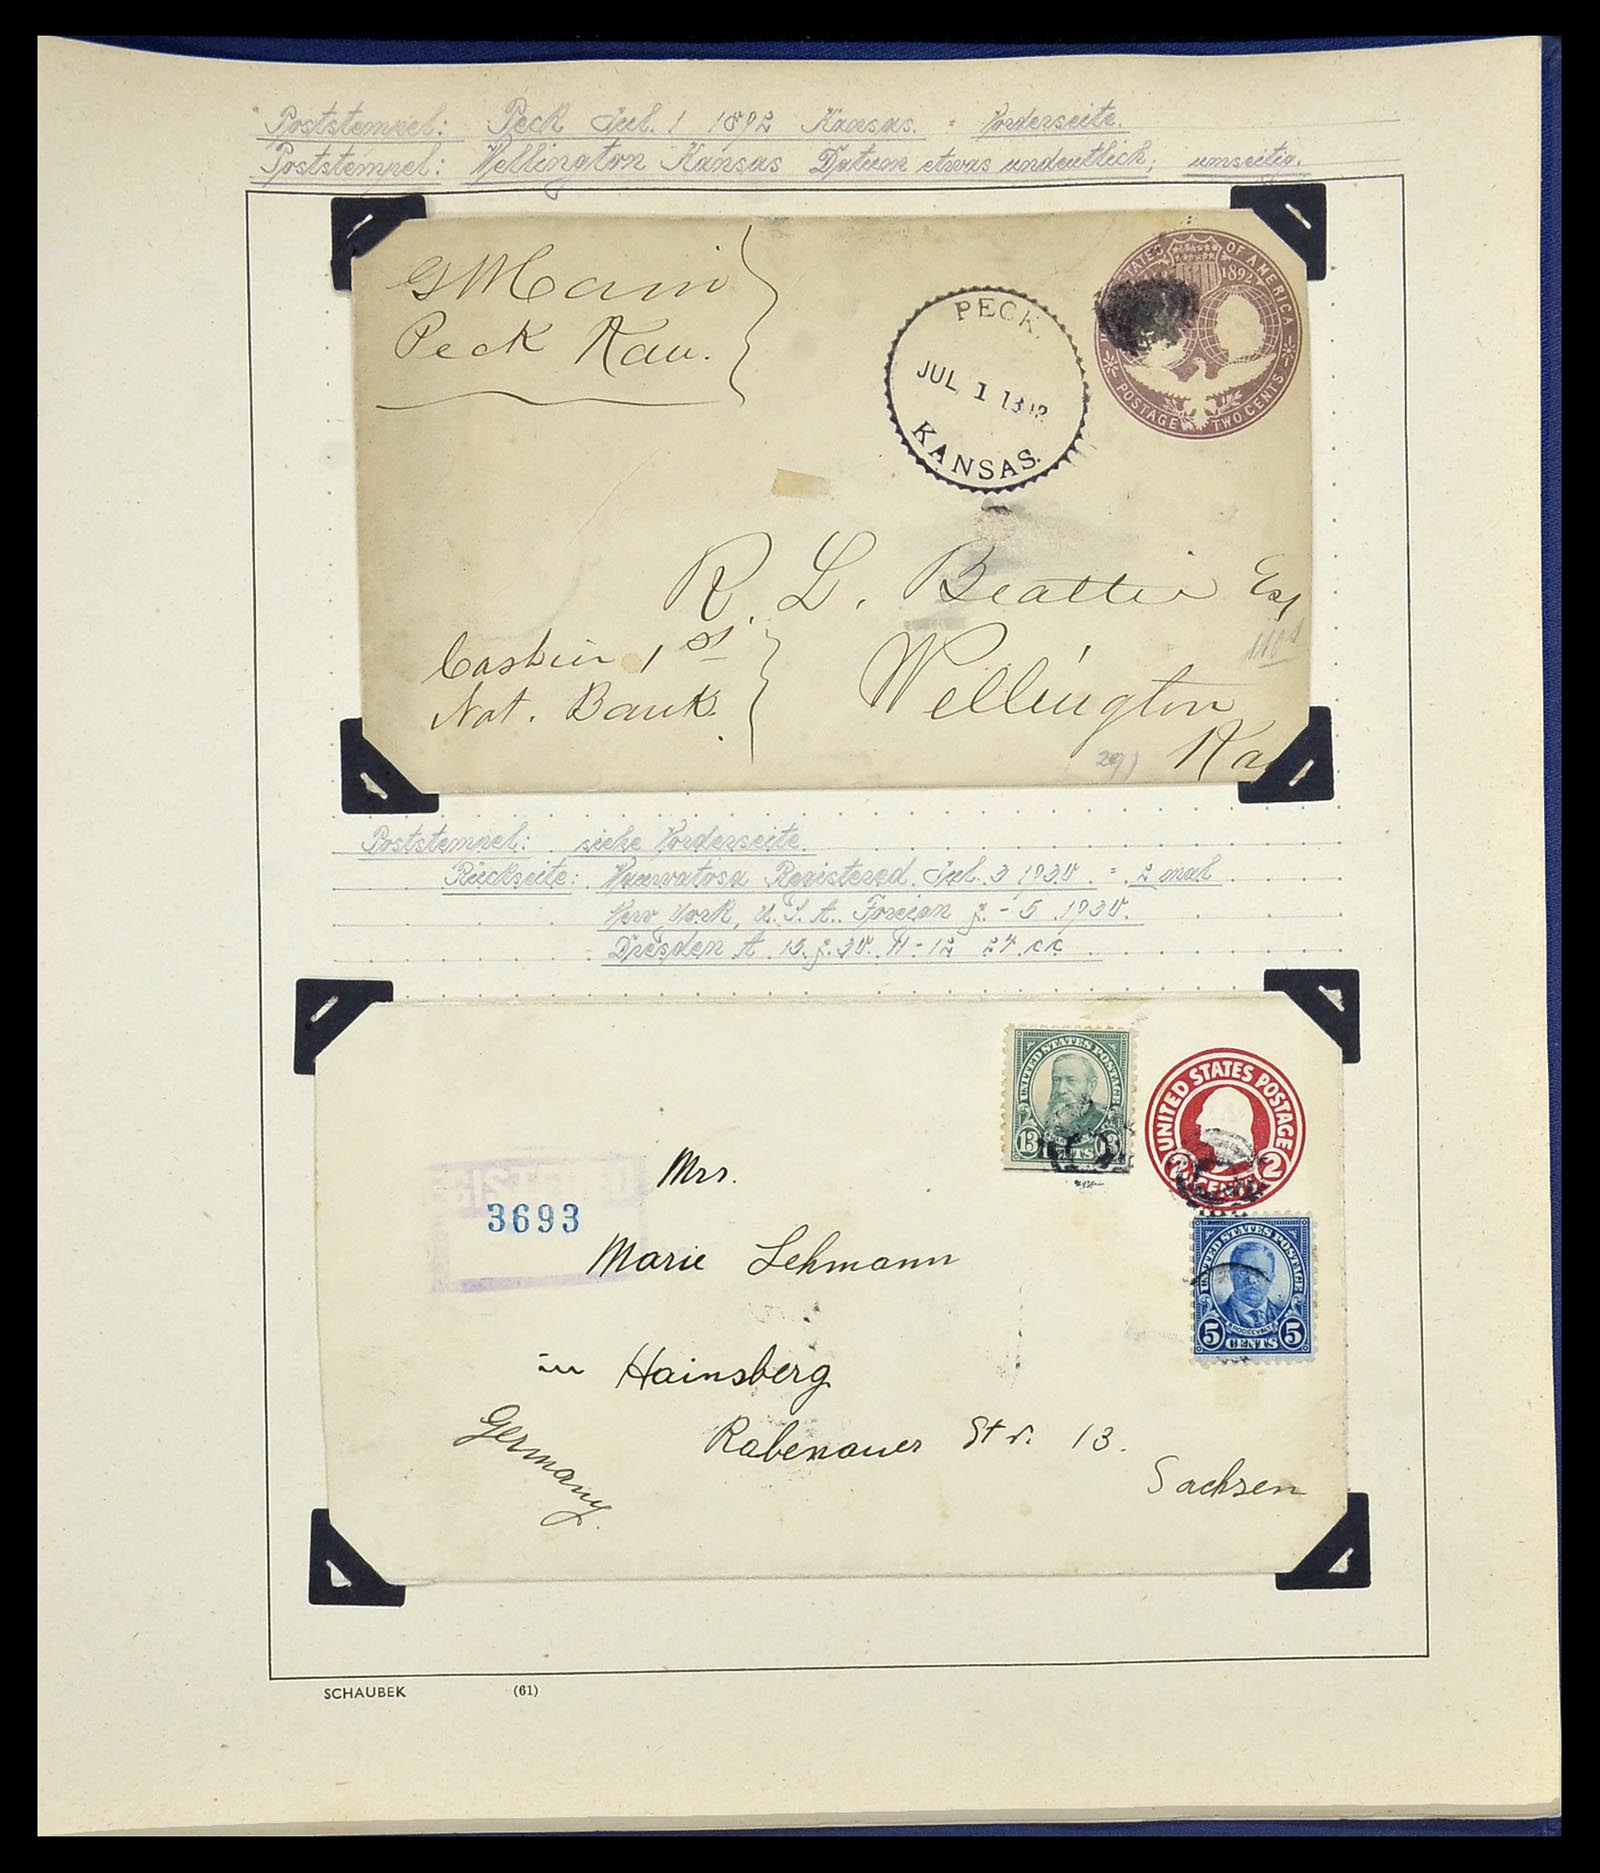 Poststempel: Peck Jul. 1 1892 Kansas. = Vorderseite.
Poststempel: Wellington Kansas Datum etwas undeutlich, umseitig.
Peck Kan.
PECK.
JUL 1
KANSAS.
STATES OF AMERICA
1892
POSTAGE TWO CENTS
R. L. Beattie Esq
Cashier 1st
Nat. Bank.
Wellington
Ka
29)
Poststempel: siehe Vorderseite.
Rückseite: Wauwatosa Registered Jul. 3 1930. = 2 mal
New York, U.S.A. Foreign 7. - 5 1930.
Dresden A 15.7.30. 11-12 24
UNITED STATES POSTAGE
13 CENTS 13
UNITED STATES POSTAGE
2 CENTS 2
3693
UNITED STATES POSTAGE
ROOSEVELT
5 CENTS 5
Mrs.
Marie Lehmann
in Hainsberg
Rabenauer Str. 13.
Germany.
Sachsen
SCHAUBEK (61)